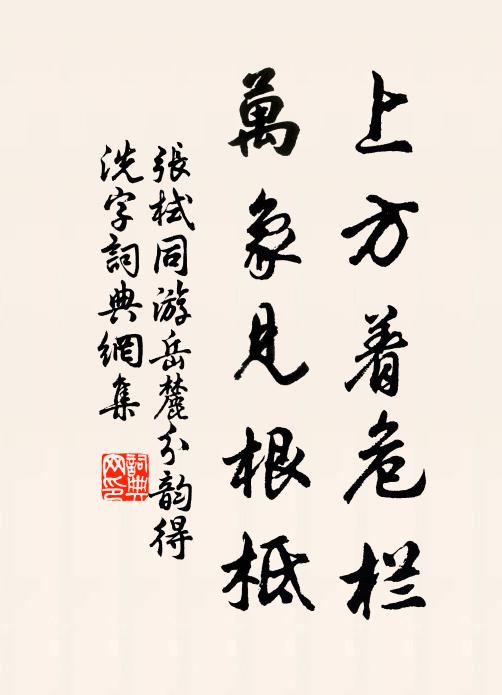 上方着危栏
萬象見根柢
張栻同游岳麓分韵得
洗字詞典網集
詞典网印